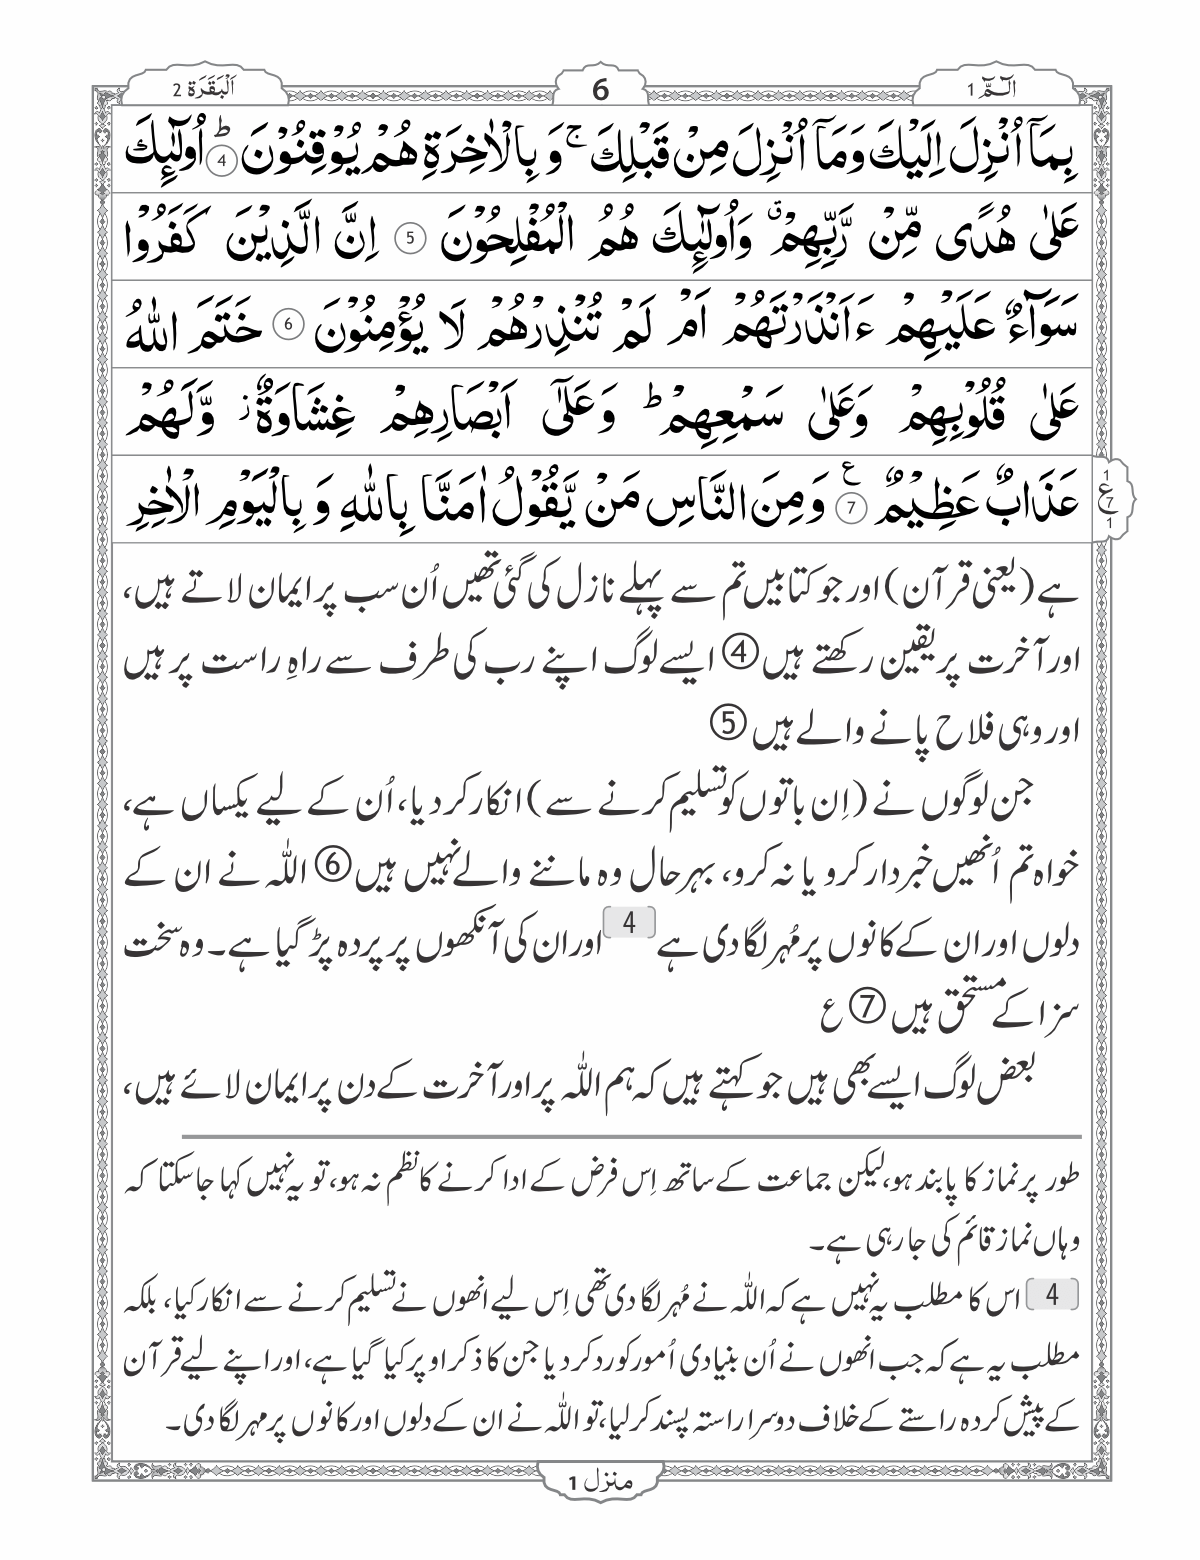 الٓمّٓ 1
6
اَلْبَقَرَة 2
بِمَآ اُنْزِلَ اِلَيْكَ وَمَآ اُنْزِلَ مِنْ قَبْلِكَ ۚ وَ بِالْاٰخِرَةِ هُمْ يُوْقِنُوْنَ ؕ ④ اُولٰٓئِكَ
عَلٰى هُدًى مِّنْ رَّبِّهِمْ ۙق وَاُولٰٓئِكَ هُمُ الْمُفْلِحُوْنَ ⑤ اِنَّ الَّذِيْنَ كَفَرُوْا
سَوَآءٌ عَلَيْهِمْ ءَاَنْذَرْتَهُمْ اَمْ لَمْ تُنْذِرْهُمْ لَا يُؤْمِنُوْنَ ⑥ خَتَمَ اللّٰهُ
عَلٰى قُلُوْبِهِمْ وَعَلٰى سَمْعِهِمْ ؕ وَعَلٰٓى اَبْصَارِهِمْ غِشَاوَةٌ ز وَّلَهُمْ
عَذَابٌ عَظِيْمٌ ⑦ ع وَمِنَ النَّاسِ مَنْ يَّقُوْلُ اٰمَنَّا بِاللّٰهِ وَ بِالْيَوْمِ الْاٰخِرِ
1 ع 7 1
ہے (یعنی قرآن) اور جو کتابیں تم سے پہلے نازل کی گئی تھیں اُن سب پر ایمان لاتے ہیں،
اور آخرت پر یقین رکھتے ہیں ④ ایسے لوگ اپنے رب کی طرف سے راہِ راست پر ہیں
اور وہی فلاح پانے والے ہیں ⑤
جن لوگوں نے (اِن باتوں کو تسلیم کرنے سے) انکار کر دیا، اُن کے لیے یکساں ہے،
خواہ تم اُنھیں خبردار کرو یا نہ کرو، بہرحال وہ ماننے والے نہیں ہیں ⑥ اللہ نے ان کے
دلوں اور ان کے کانوں پر مُہر لگا دی ہے [4] اور ان کی آنکھوں پر پردہ پڑ گیا ہے۔ وہ سخت
سزا کے مستحق ہیں ⑦ ع
بعض لوگ ایسے بھی ہیں جو کہتے ہیں کہ ہم اللہ پر اور آخرت کے دن پر ایمان لائے ہیں،
طور پر نماز کا پابند ہو، لیکن جماعت کے ساتھ اِس فرض کے ادا کرنے کا نظم نہ ہو، تو یہ نہیں کہا جاسکتا کہ
وہاں نماز قائم کی جا رہی ہے۔
[4] اس کا مطلب یہ نہیں ہے کہ اللہ نے مُہر لگا دی تھی اِس لیے انھوں نے تسلیم کرنے سے انکار کیا، بلکہ
مطلب یہ ہے کہ جب انھوں نے اُن بنیادی اُمور کو رد کر دیا جن کا ذکر اوپر کیا گیا ہے، اور اپنے لیے قرآن
کے پیش کردہ راستے کے خلاف دوسرا راستہ پسند کر لیا، تو اللہ نے ان کے دلوں اور کانوں پر مہر لگا دی۔
منزل 1